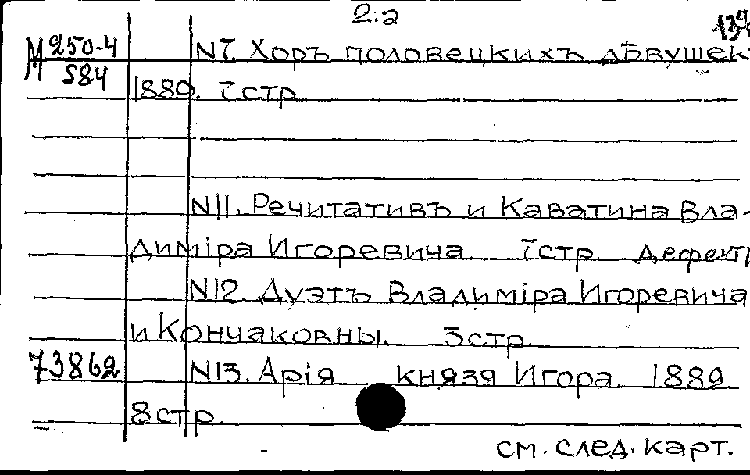 2:2
134
М 250-4 N7. Хоръ половецкихъ дѣвушек
584
1889. 7стр
N11. Речитативъ и Каватина Вла-
диміра Игоревича. 7стр дефект
N12. Дуэтъ Владиміра Игоревича
и Кончаковны. 3стр
73862 N13. Арія князя Игора. 1889
8стр.
см. след. карт.